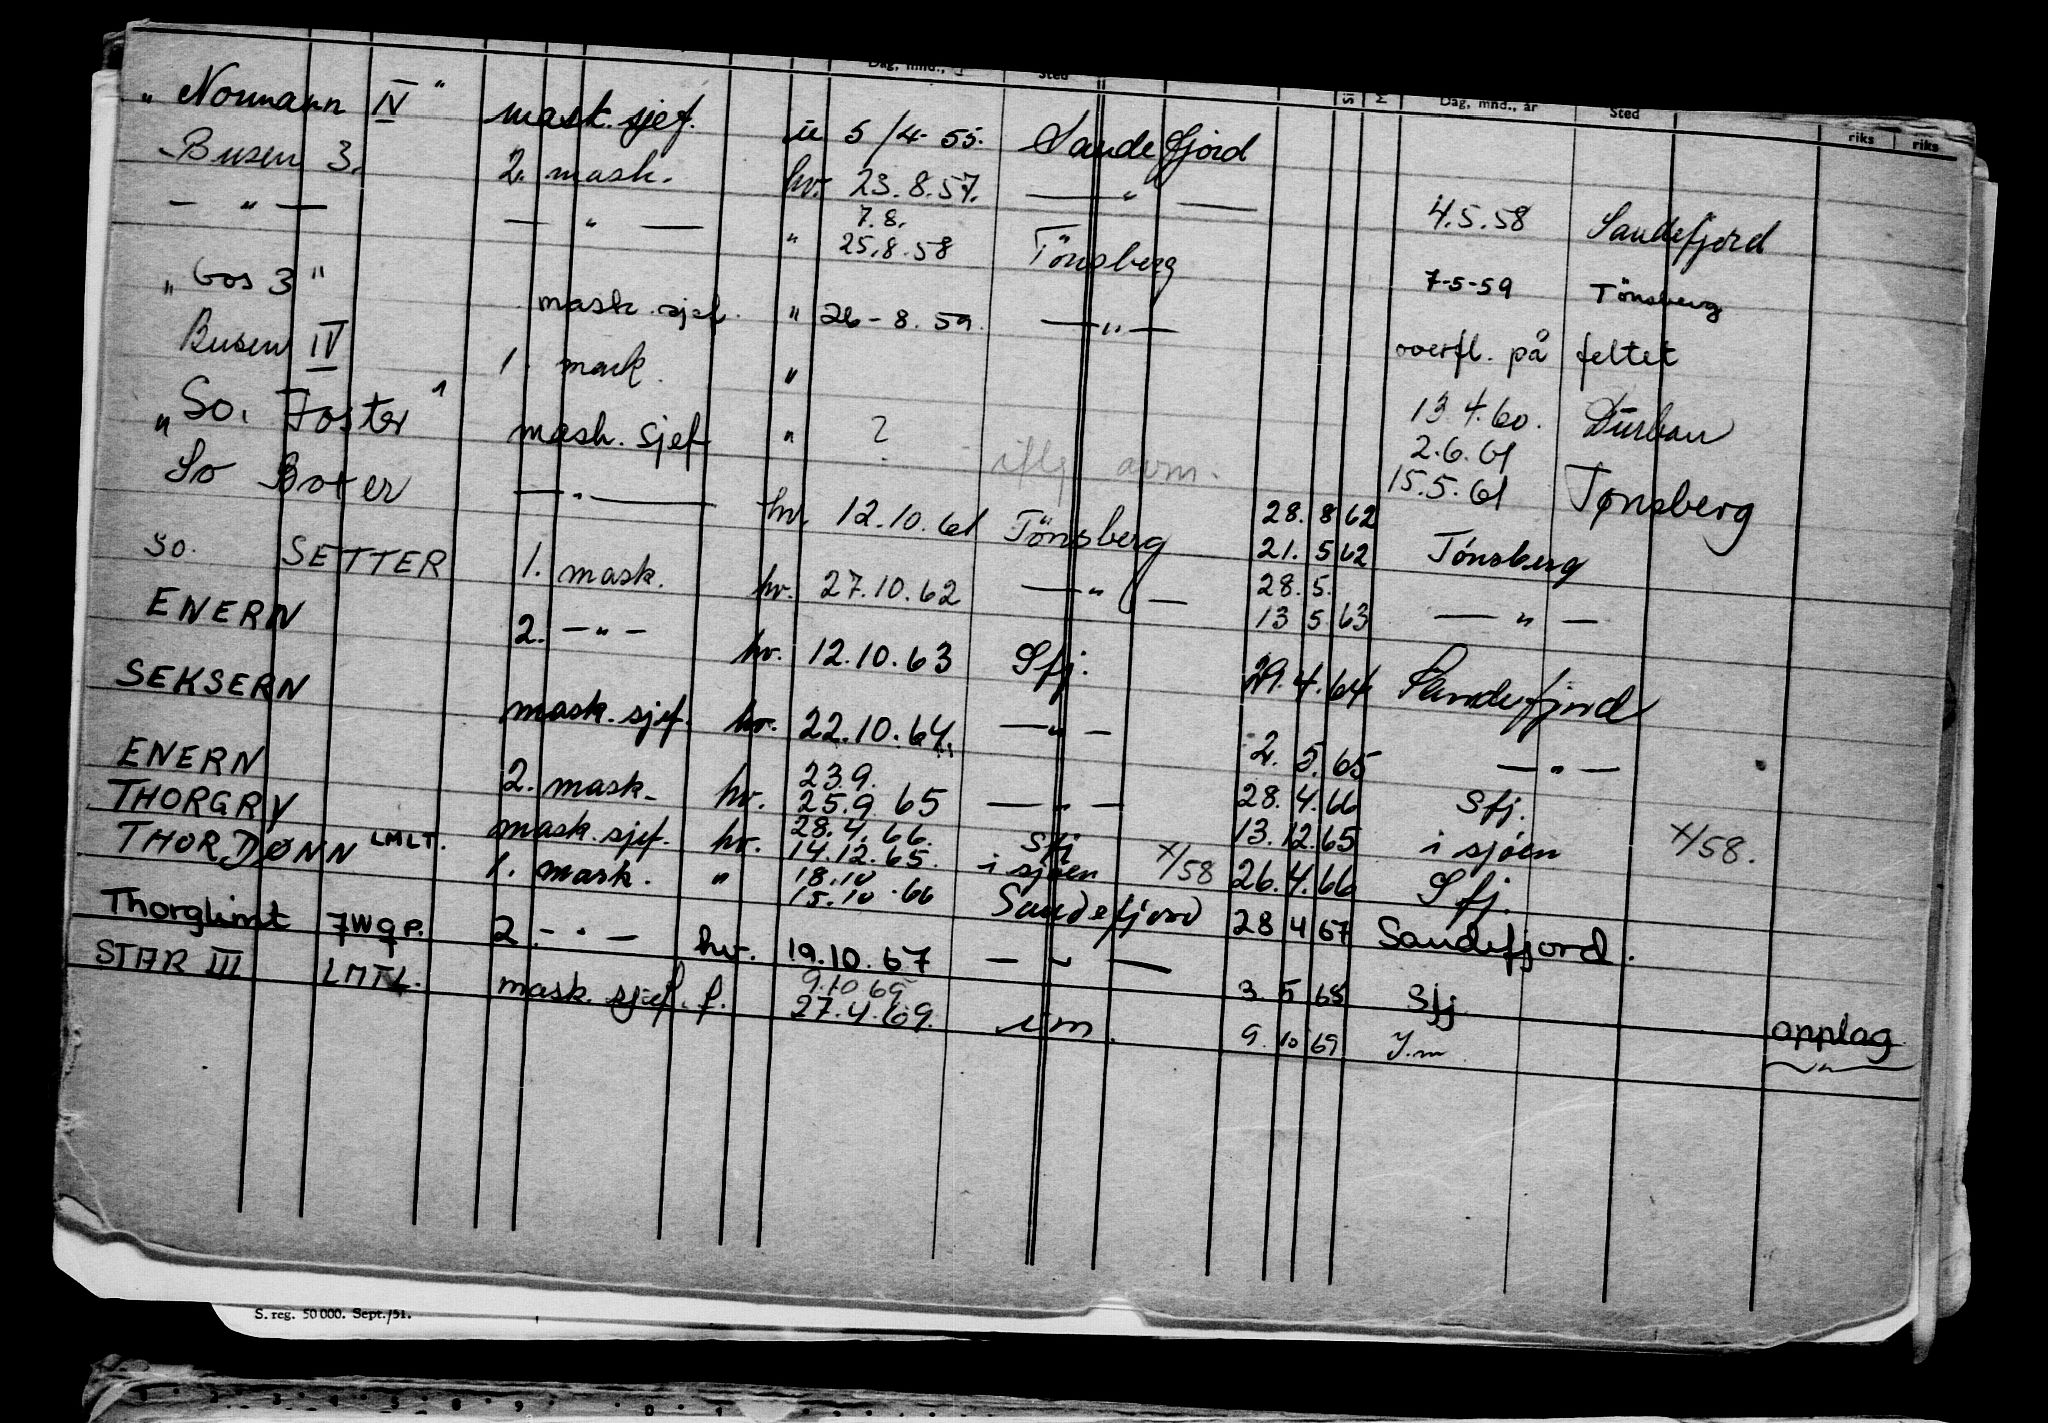 Dag, mnd., Sted Dag, mnd., år Sted riks riks
„ Normann IV " mask. sjef. u 5/4-55. Sandefjord
Busen 3. 2. mask. hv. 23.8.57. — " — 4.5.58 Sandefjord
— " — — " — " 7.8.
25.8.58 Tönsberg 7-5-59 Tönsberg
„ Gos 3 " mask. sjef. " 26-8.59. — " — overfl. på feltet
Busen IV 1. mask. " 13.4.60. Durban
„ So. Foster " mask. sjef " ? iflg avm. 2.6.61
15.5.61 Tønsberg
So Boter — " — hv. 12.10.61 Tönsberg 28. 8 62
21. 5 62 Tönsberg
So. SETTER 1. mask. hv. 27.10.62 — " — 28. 5.
13 5 63 — " —
ENERN 2. — " — hv. 12.10.63 Sfj. 29. 4. 64 Sandefjord
SEKSERN mask. sjef. hv. 22.10.64. — " — 2. 5. 65 — " —
ENERN 2. mask. hv. 23.9.
25.9 65 — " — 28. 4. 66 Sfj.
THORGRY mask. sjef. hv. 28.4.66.
14.12.65. Sfj
i sjøen x/58 13. 12. 65 i sjøen x/58.
THORDØNN LMLT. 1. mask. " 18.10
15.10.66 Sandefjord 26. 4. 66 Sfj.
28 4 67 Sandefjord.
Thorglimt JWQP. 2. — " — hv. 19.10.67 — " — 3. 5 68 Sfj opplag
STAR III LMTL. mask. sjef. f. 9.10 69
27.4.69. i.m. 9. 10 69 I.m. — " —
S. reg. 50 000. Sept./51.